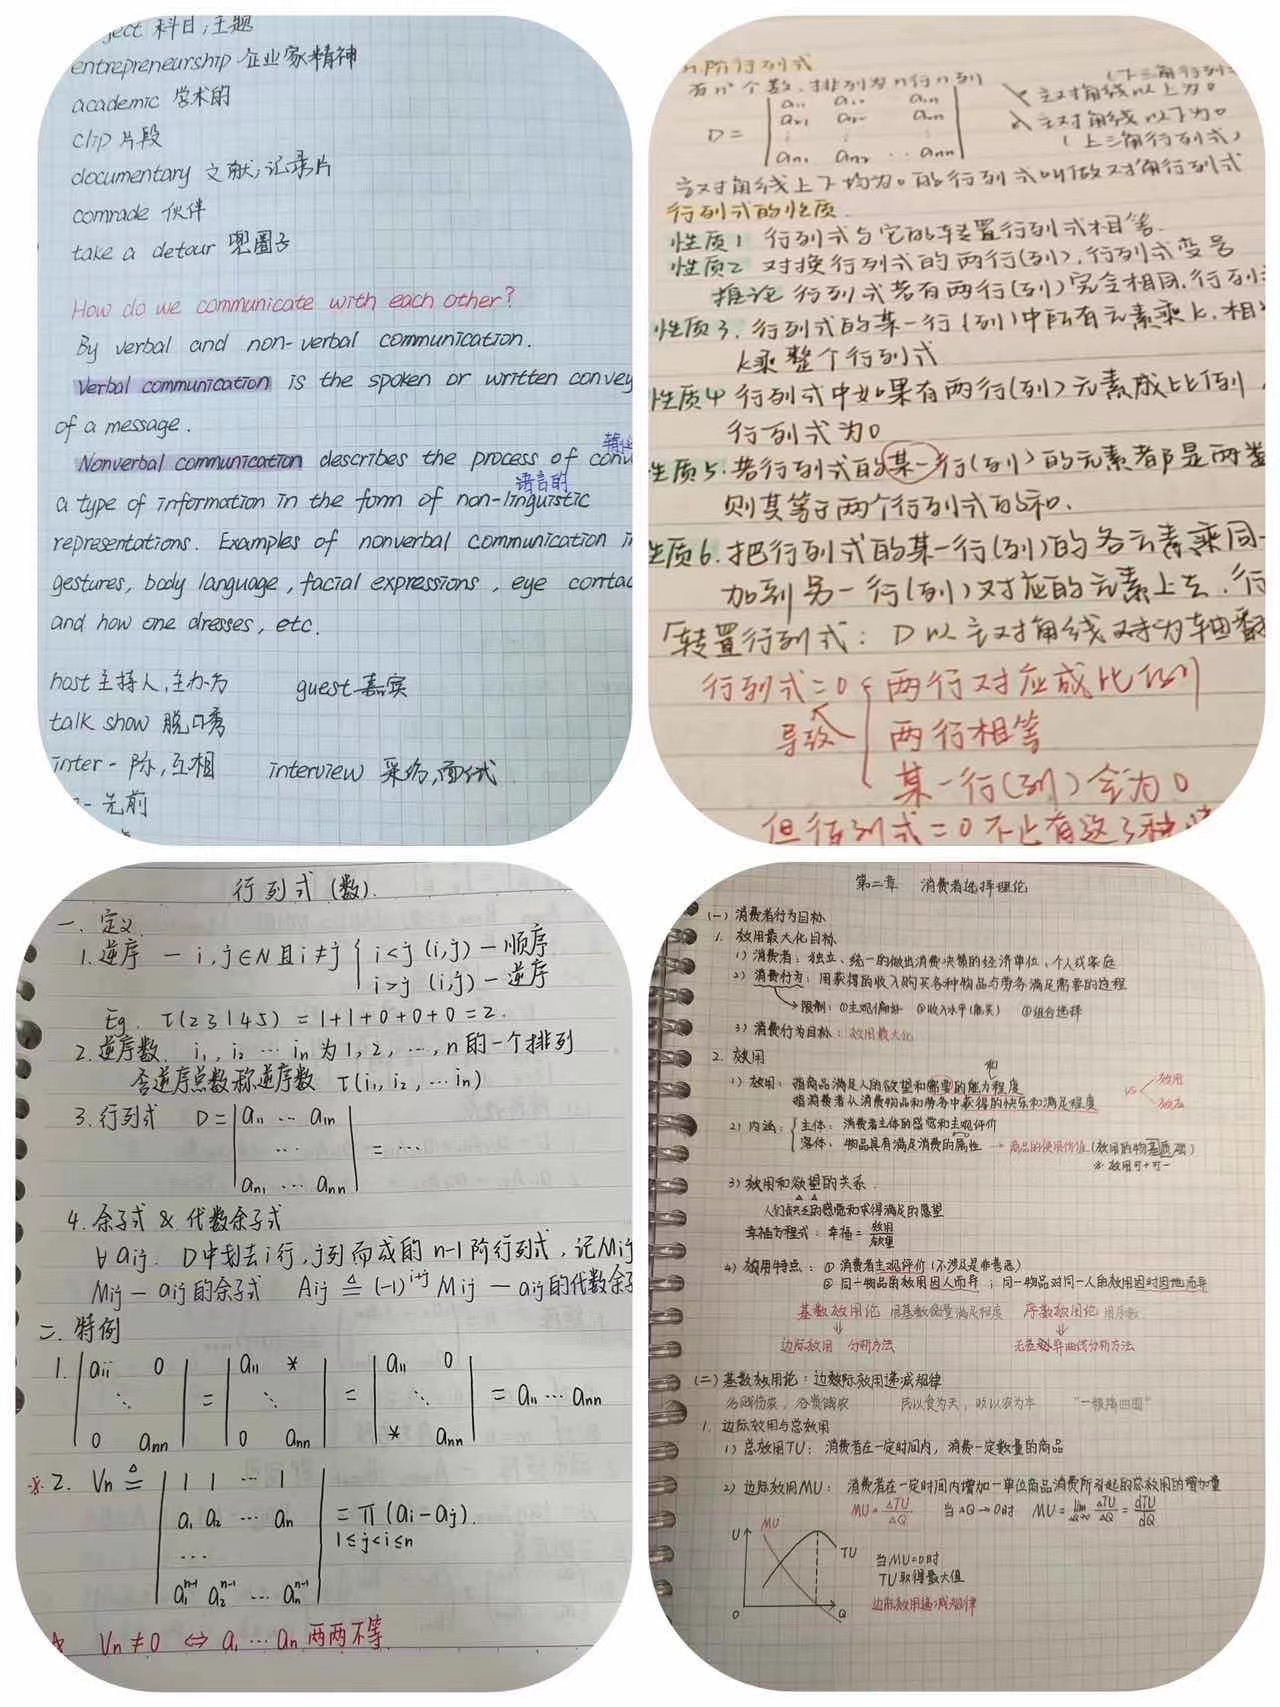 ject 科目;主题
entrepreneurship 企业家精神
academic 学术的
clip 片段
documentary 文献;记录片
comrade 伙伴
take a detour 兜圈子
How do we communicate with each other?
By verbal and non-verbal communication.
Verbal communication is the spoken or written convey
of a message.
Nonverbal communication describes the process of conv
语言的
a type of information in the form of non-linguistic
representations. Examples of nonverbal communication in
gestures, body language, facial expressions, eye contac
and how one dresses, etc.
host 主持人,主办方 guest 嘉宾
talk show 脱口秀
inter- 际,互相 interview 采访,面试
- 先前
n阶行列式
有n²个数,排列为n行n列 (下三角行列式
D = | a₁₁ a₁₂ a₁ₙ | 主对角线以上为0
a₂₁ a₂₂ a₂ₙ 主对角线以下为0
⋮ ⋮ ⋮ (上三角行列式)
aₙ₁ aₙ₂ ⋯ aₙₙ
主对角线上下均为0的行列式叫做对角行列式
行列式的性质
性质1 行列式与它的转置行列式相等.
性质2 对换行列式的两行(列),行列式变号
推论 行列式若有两行(列)完全相同,行列式
性质3. 行列式的某一行(列)中所有元素乘k,相
k乘整个行列式
性质4 行列式中如果有两行(列)元素成比例,
行列式为0
性质5. 若行列式的某一行(列)的元素都是两数
则其等于两个行列式的和.
性质6. 把行列式的某一行(列)的各元素乘同一
加到另一行(列)对应的元素上去,行
「转置行列式: D以主对角线对为轴翻
行列式=0 { 两行对应成比例
导致 两行相等
某一行(列)全为0
但行列式=0不止有这3种情
行列式 (数).
一. 定义
1. 逆序 — i, j∈N且i≠j { i<j (i,j) — 顺序
i>j (i,j) — 逆序
Eg. τ(23145) = 1+1+0+0+0 = 2.
2. 逆序数. i₁, i₂ ⋯ iₙ 为 1, 2, ⋯, n 的一个排列
含逆序总数称逆序数 τ(i₁, i₂, ⋯ iₙ)
3. 行列式 D = | a₁₁ ⋯ a₁ₙ |
⋯ = ⋯
aₙ₁ ⋯ aₙₙ
4. 余子式 & 代数余子式
∀ aij. D中划去i行,j列而成的n-1阶行列式,记Mij
Mij — aij的余子式 Aij ≜ (-1)^{i+j} Mij — aij的代数余子
二. 特例
1. | a₁₁ 0 | | a₁₁ * | | a₁₁ 0 |
⋱ = ⋱ = ⋱ = a₁₁ ⋯ aₙₙ
0 aₙₙ 0 aₙₙ * aₙₙ
※2. Vₙ ≜ | 1 1 ⋯ 1 |
a₁ a₂ ⋯ aₙ = π (ai - aj).
⋯ 1≤j<i≤n
a₁^{n-1} a₂^{n-1} ⋯ aₙ^{n-1}
Vₙ≠0 ⇔ a₁ ⋯ aₙ 两两不等
第二章 消费者选择理论
(一) 消费者行为目标
1. 效用最大化目标
1) 消费者: 独立、统一的做出消费决策的经济单位,个人或家庭
2) 消费行为: 用获得的收入购买各种物品与劳务满足需要的过程
限制: ①主观偏好 ②收入水平(购买) ③组合选择
3) 消费行为目标: 效用最大化
2. 效用
和
1) 效用: 指商品满足人的欲望和需要的能力程度
指消费者从消费物品和劳务中获得的快乐和满足程度 vs 效用
2) 内涵: { 主体: 消费者主体的感觉和主观评价
客体: 物品具有满足消费的属性 → 商品的使用价值 (效用的物质基础)
※ 效用可+可-
3) 效用和欲望的关系.
人们缺乏的感觉和求得满足的愿望
幸福方程式: 幸福 = 效用/欲望
4) 效用特点: ① 消费者主观评价 (不涉及是非善恶)
② 同一物品的效用因人而异; 同一物品对同一人的效用因时因地而异
基数效用论 用基数衡量满足程度 序数效用论 用序数
边际效用 分析方法 无差异曲线分析方法
(二) 基数效用论: 边际效用递减规律
谷贱伤农, 谷贵饿农 民以食为天, 政以农为本
1. 边际效用与总效用
1) 总效用TU: 消费者在一定时间内, 消费一定数量的商品
2) 边际效用MU: 消费者在一定时间内增加一单位商品消费所引起的总效用的增加量
MU = ΔTU/ΔQ 当ΔQ→0时 MU = lim ΔTU/ΔQ = dTU/dQ
ΔQ→0
U MU
TU 当MU=0时
TU取得最大值
0 Q 边际效用递减规律